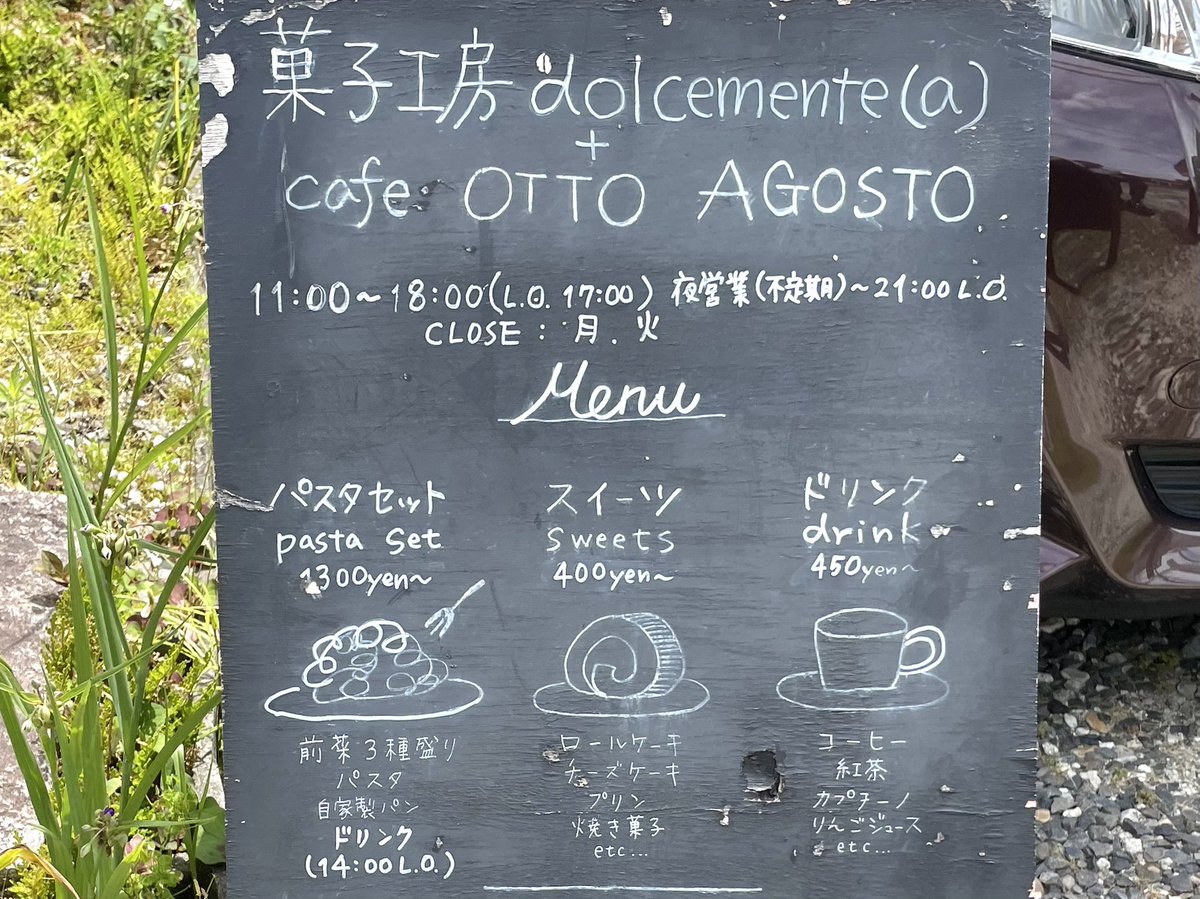 菓子工房 dolcemente(a)
+
cafe OTTO AGOSTO
11:00〜18:00(L.O. 17:00) 夜営業(不定期)〜21:00 L.O.
CLOSE : 月. 火
Menu
パスタセット
pasta set
1300yen〜
前菜3種盛り
パスタ
自家製パン
ドリンク
(14:00 L.O.)
スイーツ
sweets
400yen〜
ロールケーキ
チーズケーキ
プリン
焼き菓子
etc...
ドリンク
drink
450yen〜
コーヒー
紅茶
カプチーノ
りんごジュース
etc...